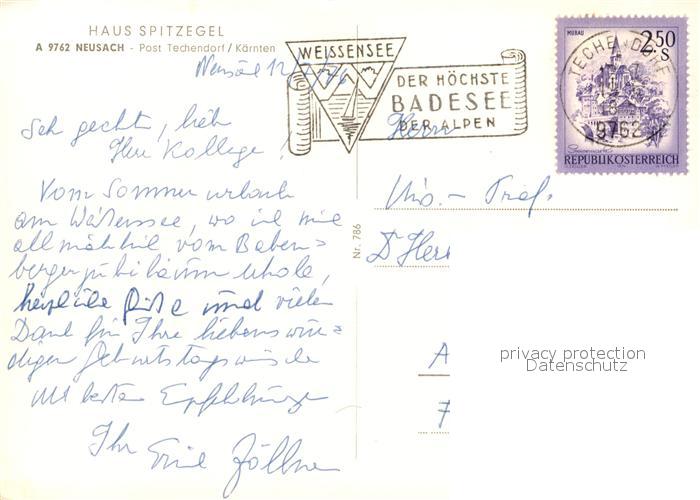 HAUS SPITZEGEL
A 9762 NEUSACH - Post Techendorf/Kärnten
WEISSENSEE
DER HÖCHSTE
BADESEE
DER ALPEN
MURAU
2.50
S
TECHENDORF
9762
REPUBLIK ÖSTERREICH
Sehr geehrter, lieber
Herr Kollege!
Vom Sommerurlaub
am Weissensee, wo ich mich
allmählich vom Baben=
bergerjubiläum erhole,
herzliche Grüße und vielen
Dank für Ihre liebenswür=
digen Geburtstagswünsche
Mit besten Empfehlungen
Ihr Erich Zöllner
Nr. 786
Herrn
Univ.- Prof.
Dr Herr
A
7
privacy protection
Datenschutz